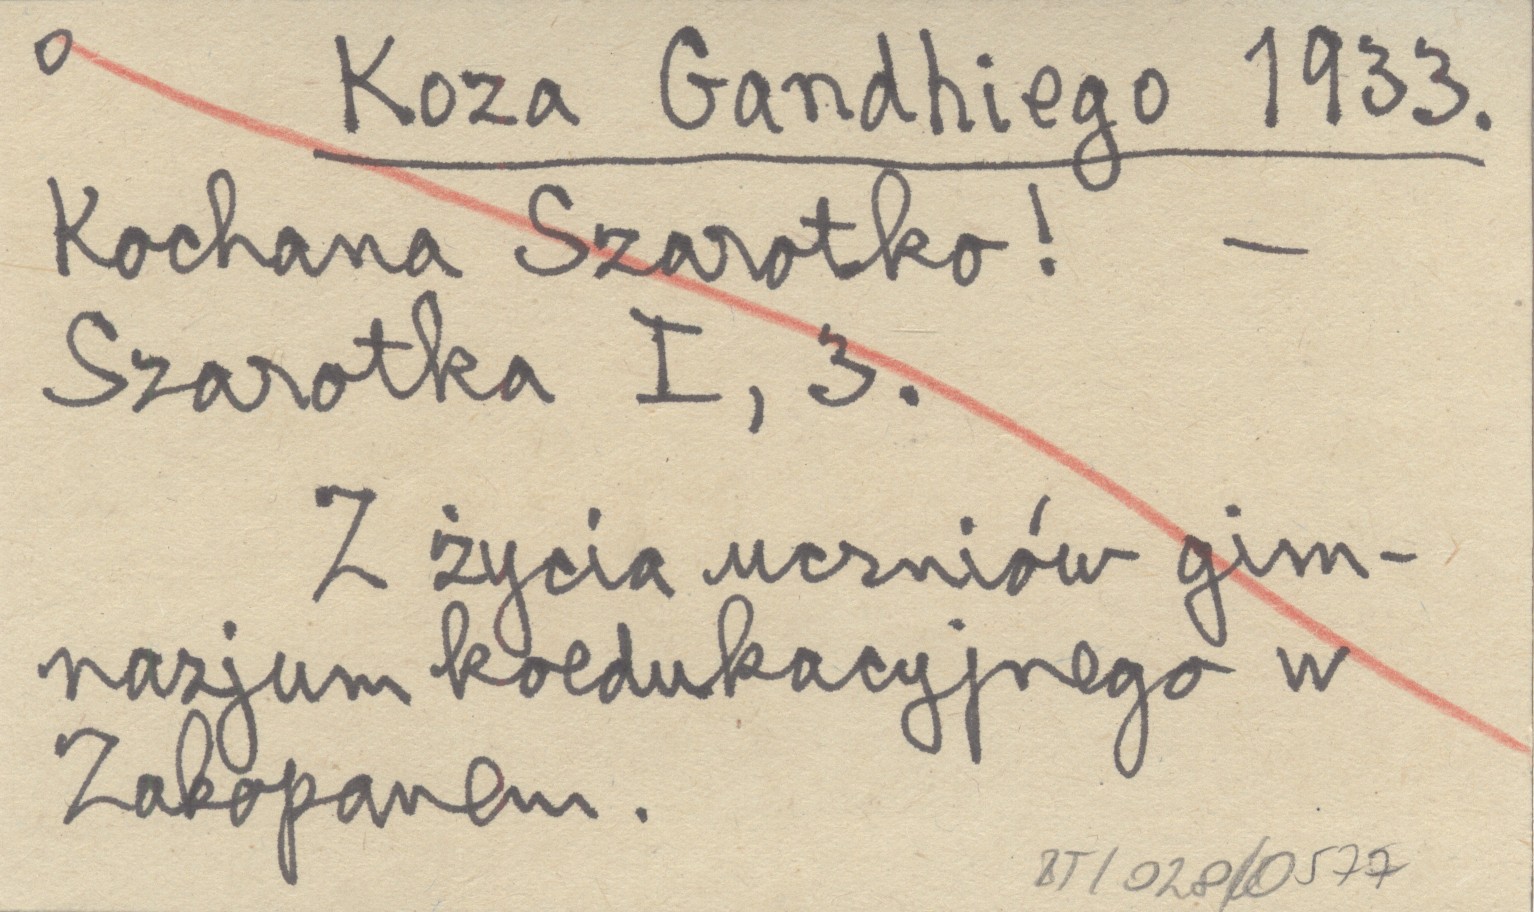 o Koza Gandhiego 1933.
Kochana Szarotko! —
Szarotka I, 3.
Z życia uczniów gim-
nazjum koedukacyjnego w
Zakopanem.
BT/028/0577